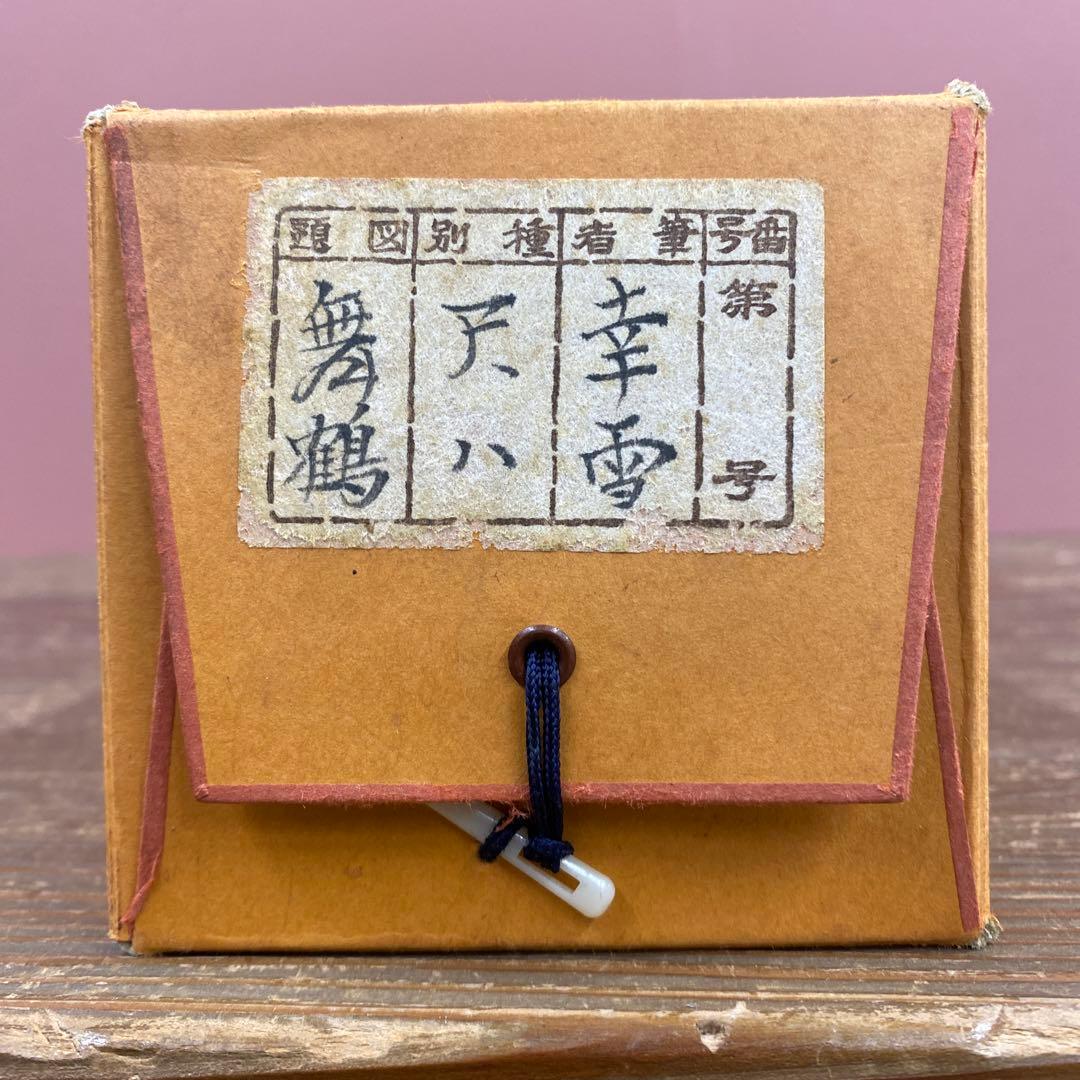 番号
第 号
筆者
幸雪
種別
尺八
図題
舞鶴